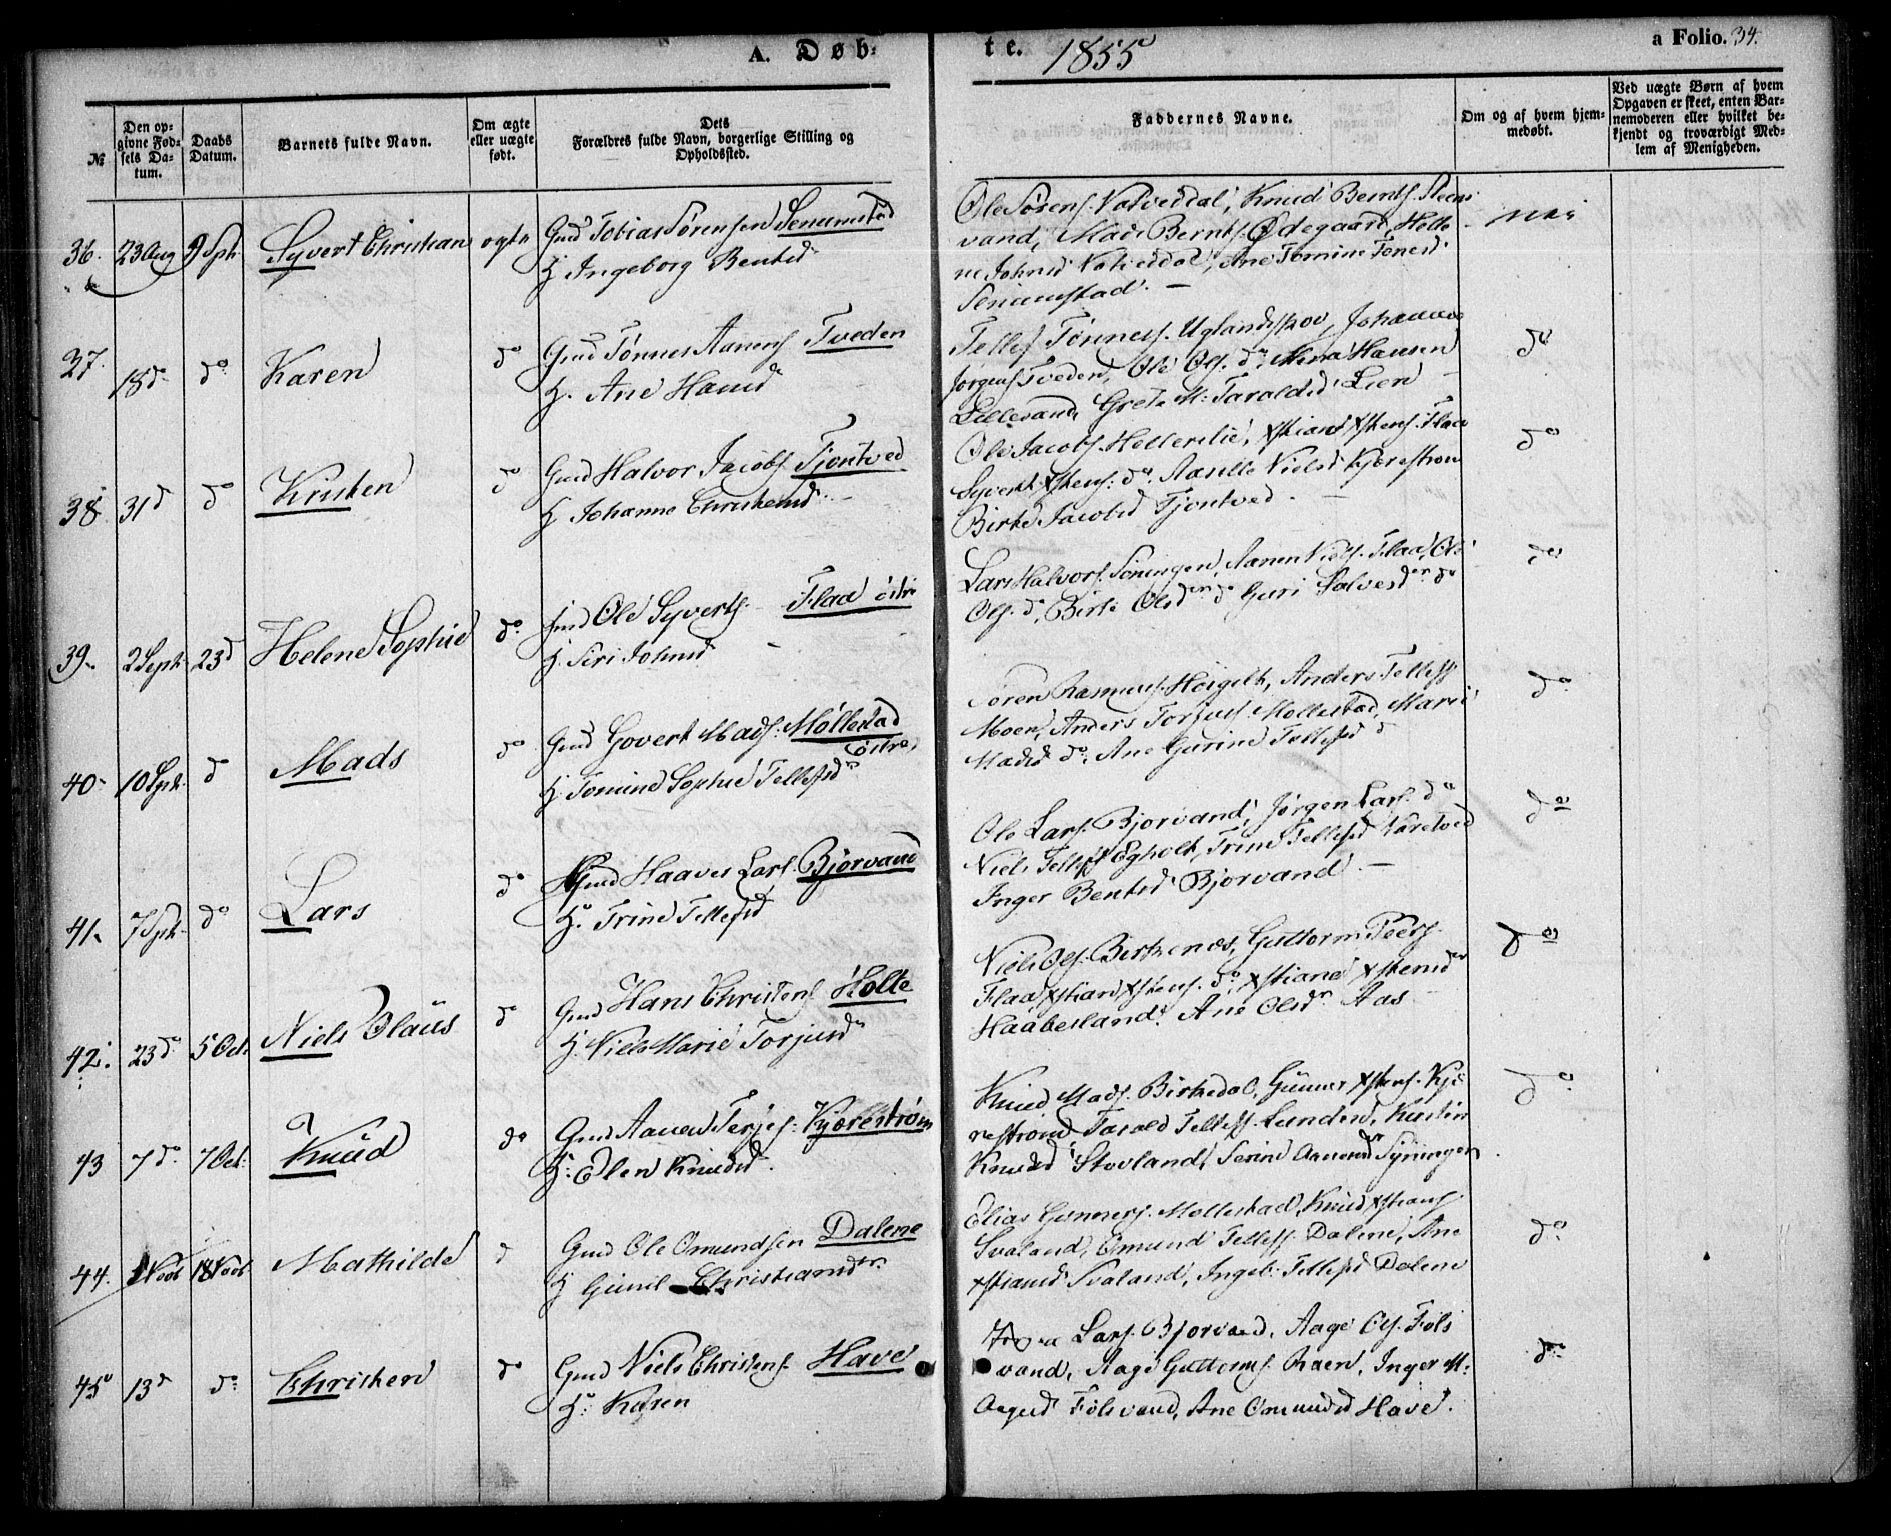 A. Døb-
te. 1855
a Folio. 34.
№
Den op-
givne Fød-
sels Da-
tum.
Daabs
Datum.
Barnets fulde Navn.
Om ægte
eller uægte
født.
Dets
Forældres fulde Navn, borgerlige Stilling og
Opholdssted.
Faddernes Navne.
Om og af hvem hjem-
medøbt.
Ved uægte Børn af hvem
Opgaven er skeet, enten Bar-
nemoderen eller hvilket be-
kjendt og troværdigt Med-
lem af Menigheden.
36. 23 Aug 9 Spt. Syvert Christian ægte
Gmd Tobias Sørensen Senumstad
H Ingeborg Bentsd
Ole Sørens. Natveddal, Knud Bernts.
vand, Mads Bernts. Ødegaard, Helle
ne Johnsd Natveddal, Ane Tomine Tønesd
Senumstad. —
nei
37. 18 do do Karen do
Gmd Tønnes Aanens Tveden
H. Ane Hansd
Tellef Tønnes. Uglandsskov, Johanne
Jørgens Tveden, Ole Ols. do, Mina Hansen
Lillesand, Grete M. Taraldsd Lien
do
38 31 d do Kristen do
Gmd Halvor Jacobs. Tjontved
H Johanne Christensd
Ole Jacobs. Hellerslie, Xstian Xstens. Flaa
Syvert Xstens. do. Aasille Nielsd Kjørestrøm
Birte Jacobsd Tjontved. —
do
39. 2 Septr 23 d Helene Sophie do
Gmd Ole Syverts. Flaa østre
H. Siri Johnsd
Lars Halvors. Søningen, Aanen Niels. Flaa, Ole
Ols. do, Birte Olsd do Guri Salvesd do
do
40. 10 Sptr. d Mads do
Gmd Govert Mads. Møllestad
østre
H Tomine Sophie Tellefsd
Søren Rasmus. Høigilt, Anders Tellefs
Moen, Anders Torjus. Mollestad, Marie
Madsd do. Ane Gurine Tellefsd d
do
41. 7 Sptr. do Lars do
Gmd Haaves Lars. Bjørvand
H. Trine Tellefsd
Ole Lars. Bjorvand, Jørgen Lars. do
Niels Tellefs Egholt, Trine Tellefsd Kåretved
Inger Bentsd Bjorvand. —
do
42. 23 do 5 Oct. Niels Olaus d
Gmd Hans Christens Holte
H. Niels Marie Torjusd
Niels Ols. Birkenæs, Guttorm Peers.
Flaa, Xstian Xstens. do, Xstiane Xstensd
Haabesland. Ane Olsdr Aas
do
43 7 do. 7 Oct. Knud do
Gmd Aanen Terjes. Kjørestrøm
H. Elen Knudsd.
Knud Mads. Birkedal, Gunner Xstens. Kjø
restrøm, Tarald Tellefs. Lunden, Kirstin
Knudsd Stovland, Serine Aanensd Syningen.
do
44. Novb 18 Novb Mathilde d
Gmd Ole Omundsen Dalene
H Gunil Christiansdr.
Elias Gunners. Mollestad, Knud Xstians
Svaland, Omund Tellefs. Dalene, Ane
Xstiansd Svaland, Ingeb. Tellefsd Dalene
do
45 13 d do Christen do
Gmd Niels Christens. Have
H. Karen
Lars. Bjorvand, Aage Ols. Føls
vand, Aage Guttorms. Raen, Inger M.
Aagesd Følsvand, Ane Omundsd Have.
do